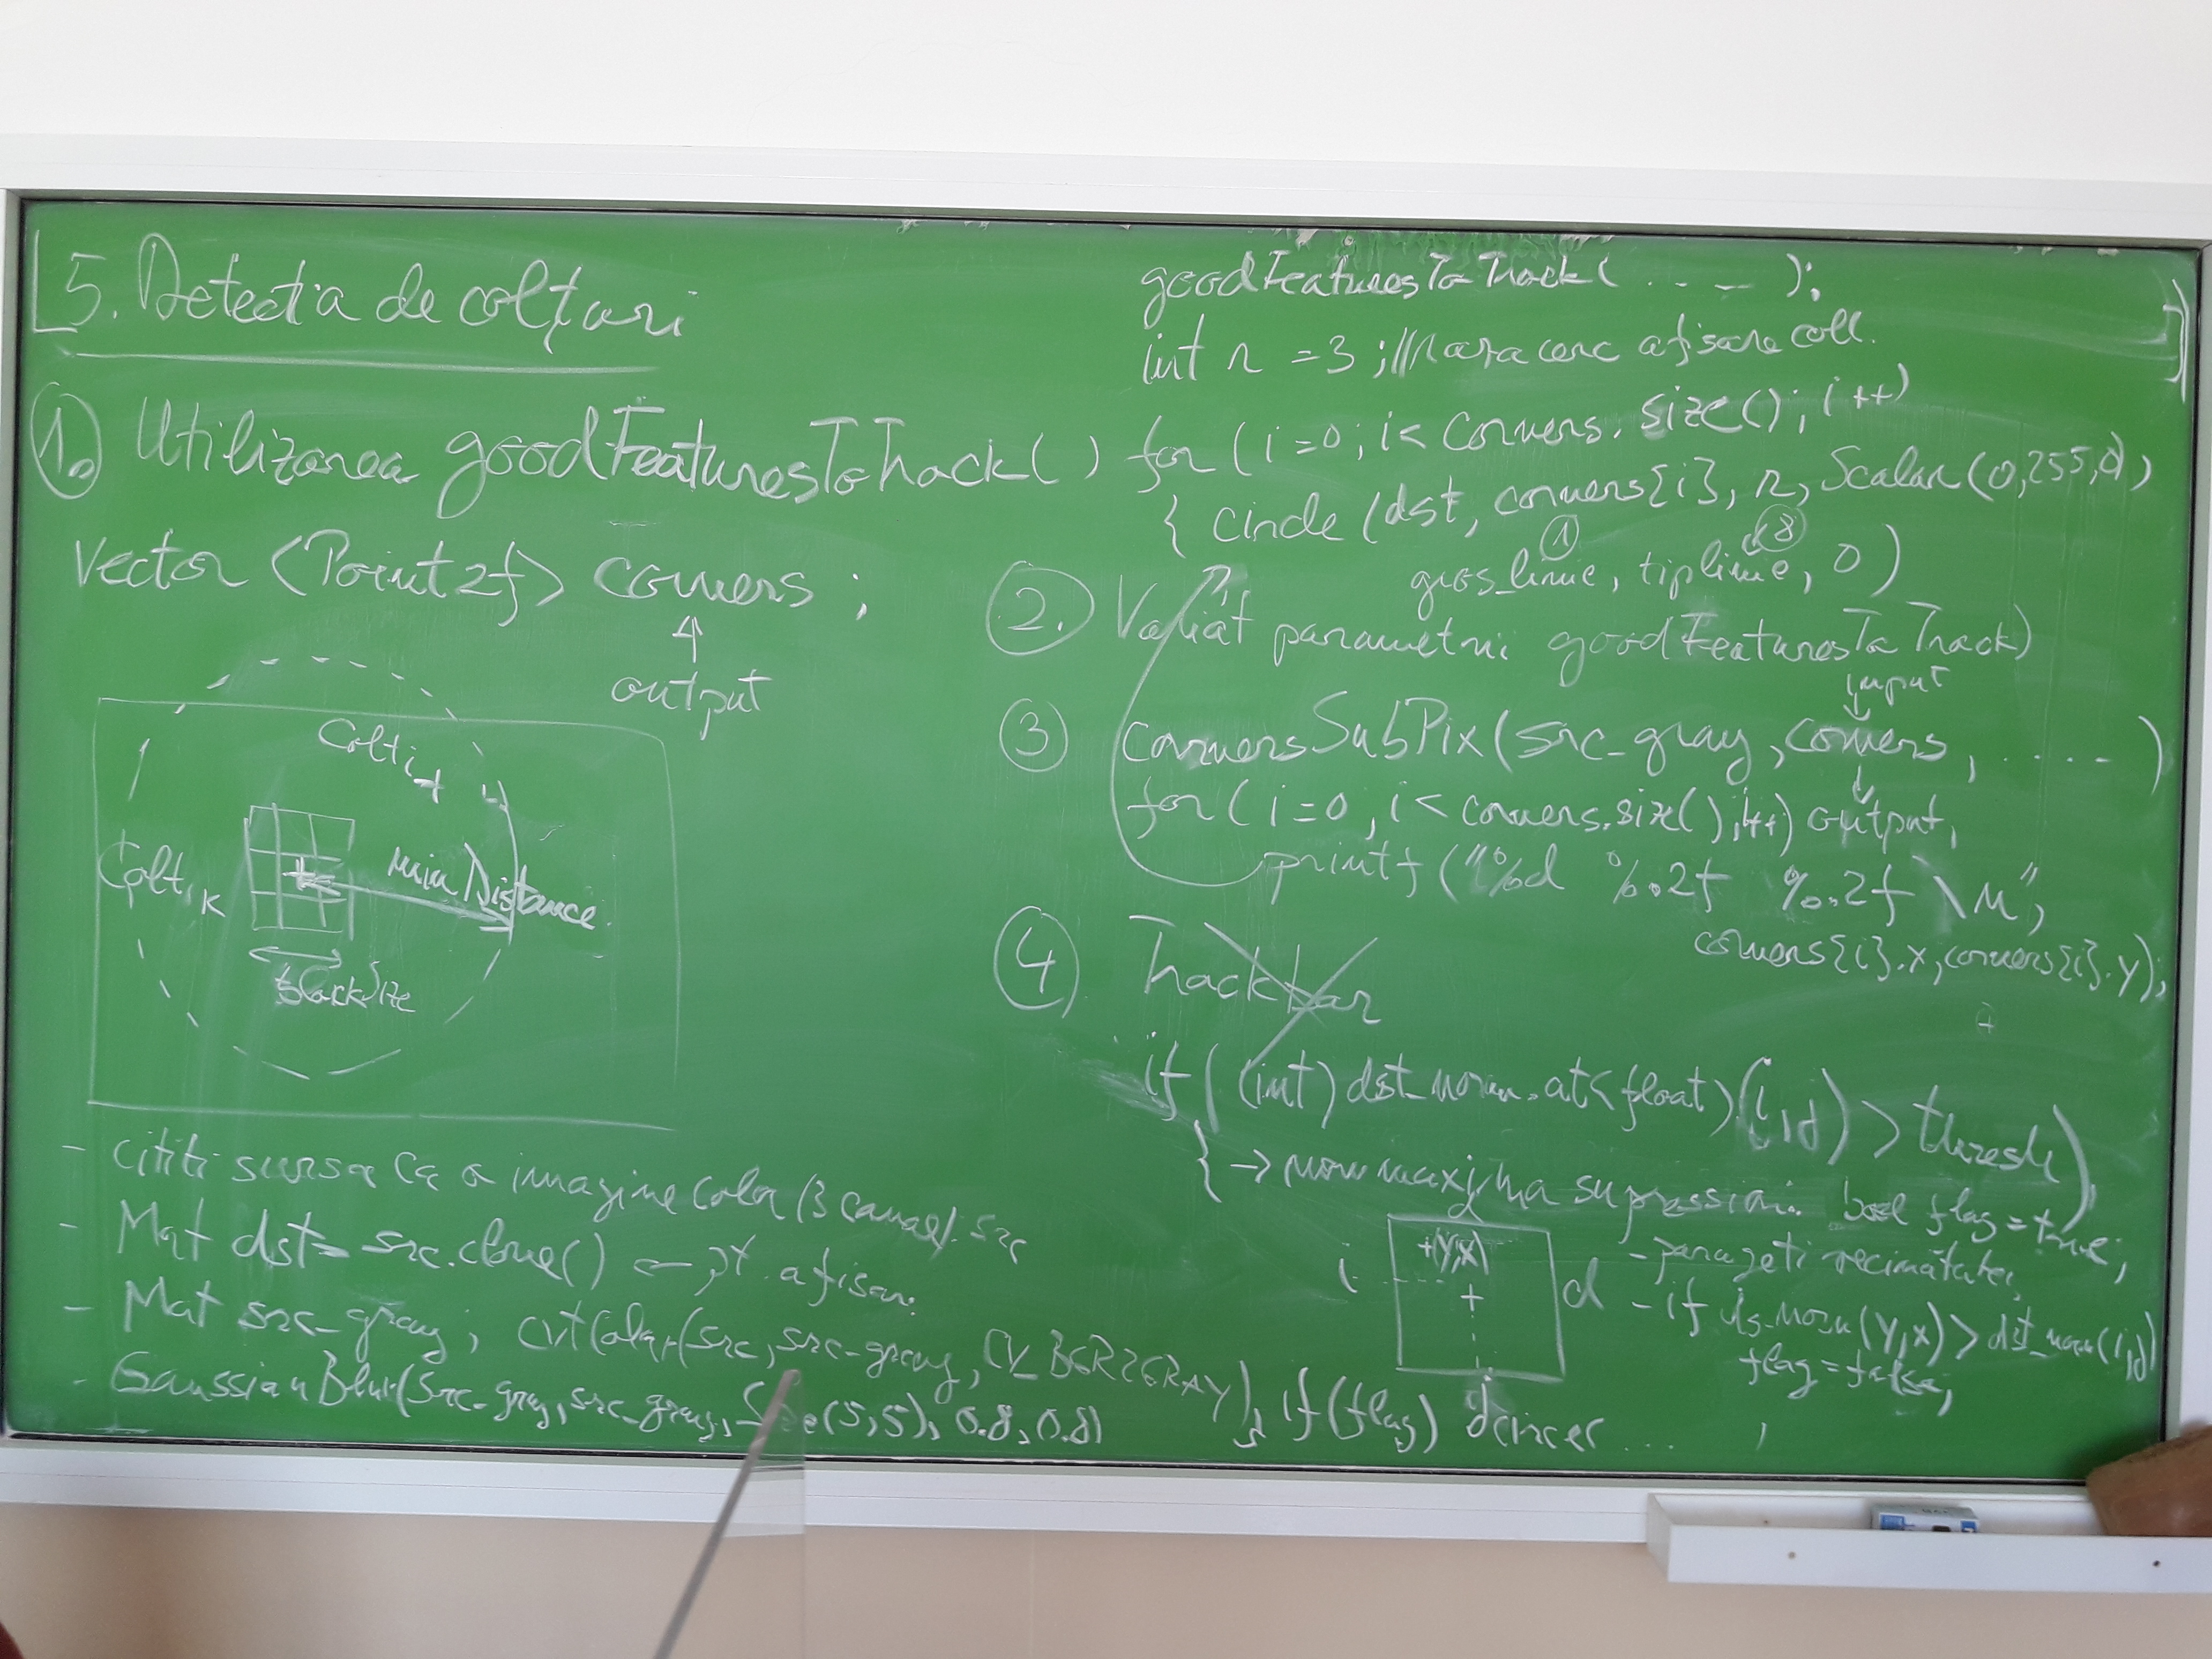 L5. Detectia de colțuri
1. Utilizarea goodFeaturesToTrack()
Vector <Point2f> corners ;
output
Colt i+1
Colt, K
min Distance
blockSize
- cititi sursa ca o imagine color (3 canale). src
- Mat dst = src.clone() ← pt. afisare
- Mat src_gray ; cvtColor(src, src_gray, CV_BGR2GRAY);
- GaussianBlur(src_gray, src_gray, Size(5,5), 0.8, 0.8)
goodFeaturesToTrack( .. -- );
int r = 3 ; // raza cerc afisare colt.
for ( i=0 ; i< corners. size() ; i++)
{ circle (dst, corners[i], r, Scalar (0,255,0)
1 8
gros_linie, tip linie, 0 )
2. Variat parametrii goodFeaturesToTrack)
input
3 cornersSubPix( src_gray , corners , ..... )
for( i=0 , i < corners.size() ; i++) output,
printf ("%d %.2f %.2f \n",
corners[i].x, corners[i].y);
4 Trackbar
if ( (int) dst_norm.at<float>(i,j) > thresh )
{ → non maxima supression. bool flag = true;
- parcgeti vecinatatea,
+(y,x)
i d
+
d
- if ds_norm (y,x) > dst_norm(i,j)
flag = false;
if (flag) d circer ...